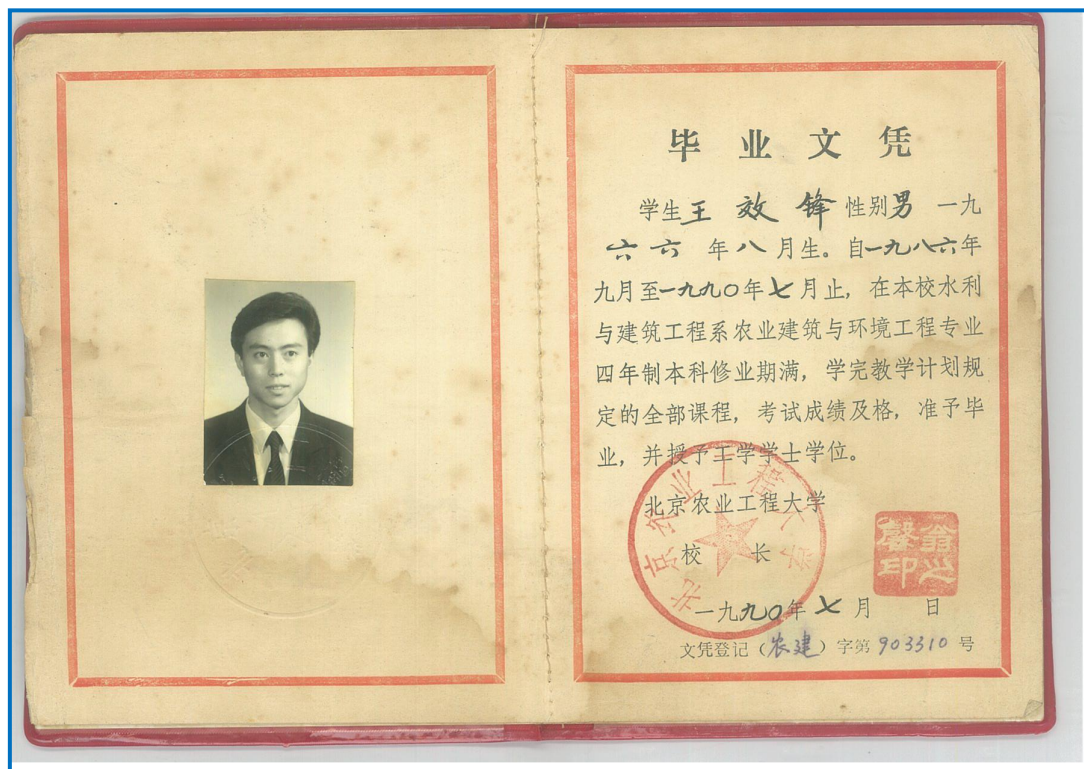 毕业文凭
学生王效锋性别男 一九
六六 年八月生。自一九八六年
九月至一九九〇年七月止，在本校水利
与建筑工程系农业建筑与环境工程专业
四年制本科修业期满，学完教学计划规
定的全部课程，考试成绩及格，准予毕
业，并授予工学学士学位。
北京农业工程大学
北京农业工程大学
校 长
翁之馨印
一九九〇年七月 日
文凭登记（农建）字第903310号